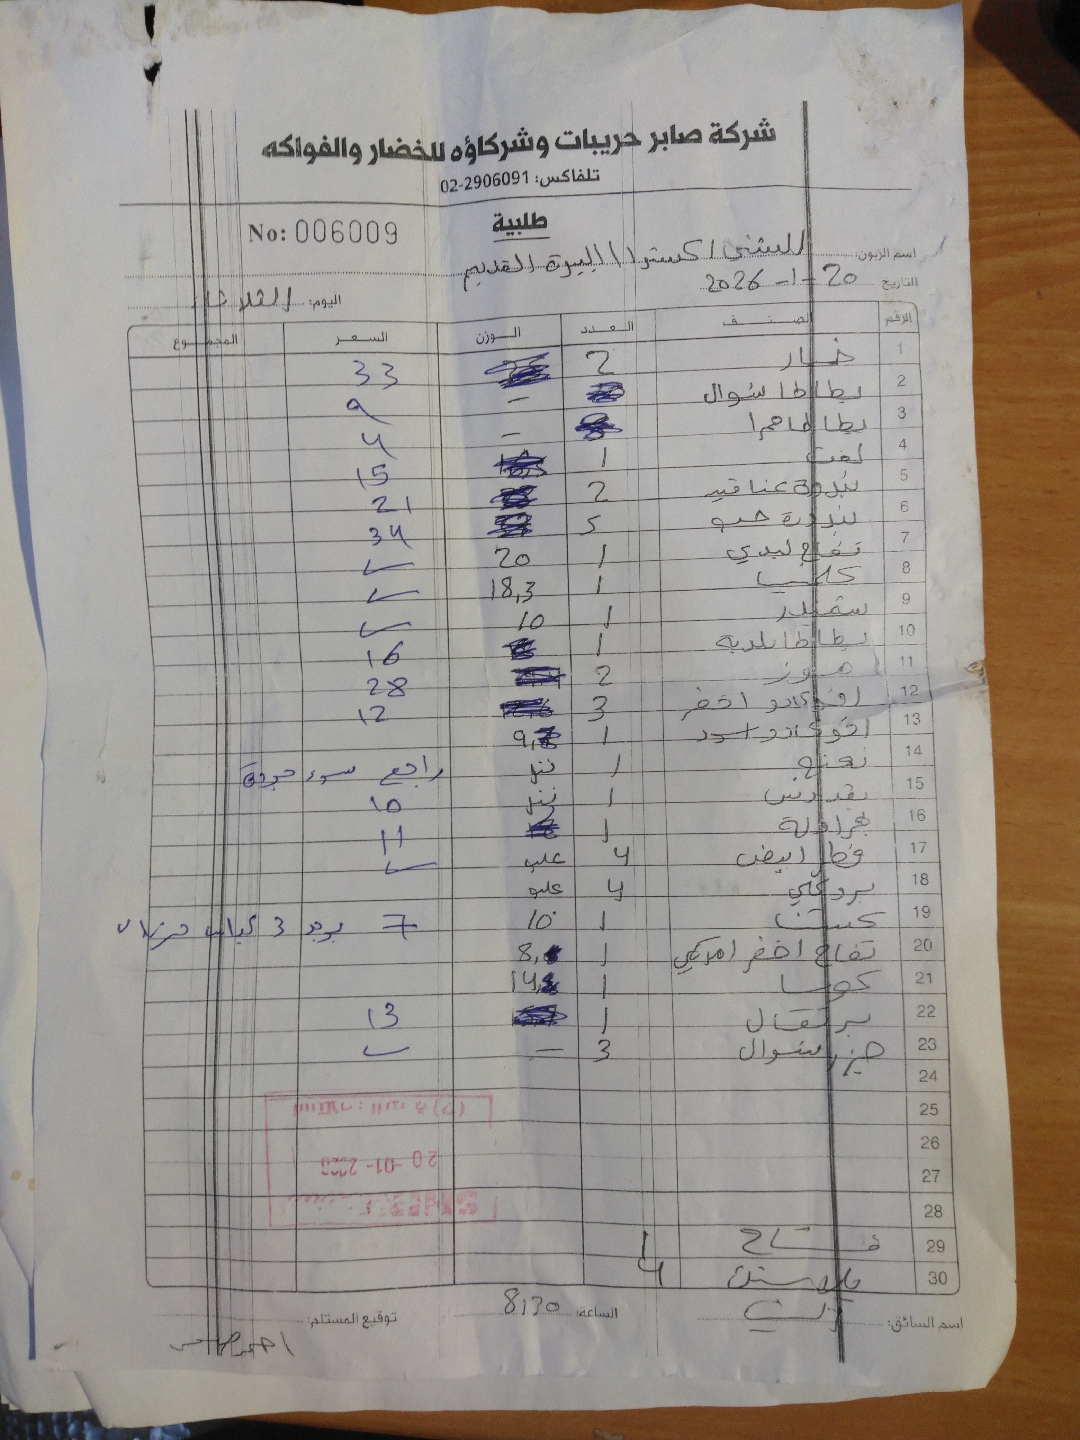 شركة صابر حريبات وشركاؤه للخضار والفواكه
تلفاكس: 02-2906091
طلبية
No: 006009
اسم الزبون: القديم
التاريخ 20-1-2026
اليوم: الثلاثاء
الرقم الصنف العدد الوزن السعر المجموع
1 خيار 2 33
2 بطاطا شوال - 9
3 بطاطا حمرا - 4
4 لفت 1 15
5 بندورة عناقيد 2 21
6 بندورة حب 5 34
7 تفاح ليدي 1 20 ✓
8 1 18,3 ✓
9 شمندر 1 10 ✓
10 بطاطا بلديه 1 16
11 موز 2 28
12 افوكادو اخضر 3 12
13 افوكادو اسود 1 9,
14 نعنع 1 راجع سوء جودة
15 بقدونس 1 10
16 1 11
17 فطر ابيض 4 علب ✓
18 بروكلي 4 علب
19 كستنا 1 10 7 يوجد 3
20 تفاح اخضر امريكي 1 8,
21 كوسا 1 14,
22 برتقال 1 13
23 جزر شوال 3 - ✓
24
25
26
27
28
29 1
30 4
20-01-2026
اسم السائق:
الساعة: 8:30
توقيع المستلم: